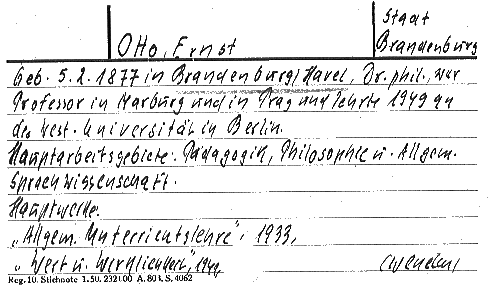 Staat
Otto, Ernst Brandenburg
Geb. 5.2.1877 in Brandenburg/Havel, Dr. phil., war
Professor in Marburg und in Prag und lehrte 1949 an
der West-Universität in Berlin.
Hauptarbeitsgebiete: Pädagogik, Philosophie u. Allgem.
Sprachwissenschaft.
Hauptwerke:
„Allgem. Unterrichtslehre", 1933,
„Wert u. Wirklichkeit", 1941
Reg. 10. Stichnote 1. 50. 2321 00 A. 80 k S. 4062